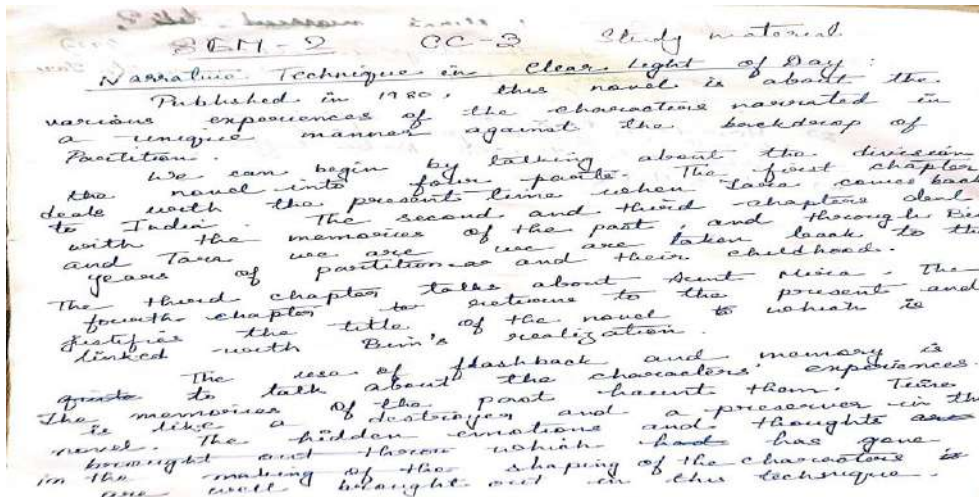 SEM-2 CC-3 Study material
Narrative Technique in Clear Light of Day :
Published in 1980, this novel is about the
various experiences of the characters narrated in
a unique manner against the backdrop of
Partition.
We can begin by talking about the division
the novel into four parts. The first chapter
deals with the present time when Tara comes back
to India. The second and third chapters deal
with the memories of the past, and through Bi
and Tara we are we are taken back to the
years of partition and their childhood.
The third chapter talks about Aunt Mira. The
fourth chapter to returns to the present and
justifies the title of the novel to which is
linked with Bim's realization.
The use of flashback and memory is
quite to talk about the characters' experiences.
The memories of the past haunt them. Time
is like a destroyer and a preserver in the
novel. The hidden emotions and thoughts are
brought out throu which had has gone
in the making of the shaping of the characters is
are well brought out in this technique.